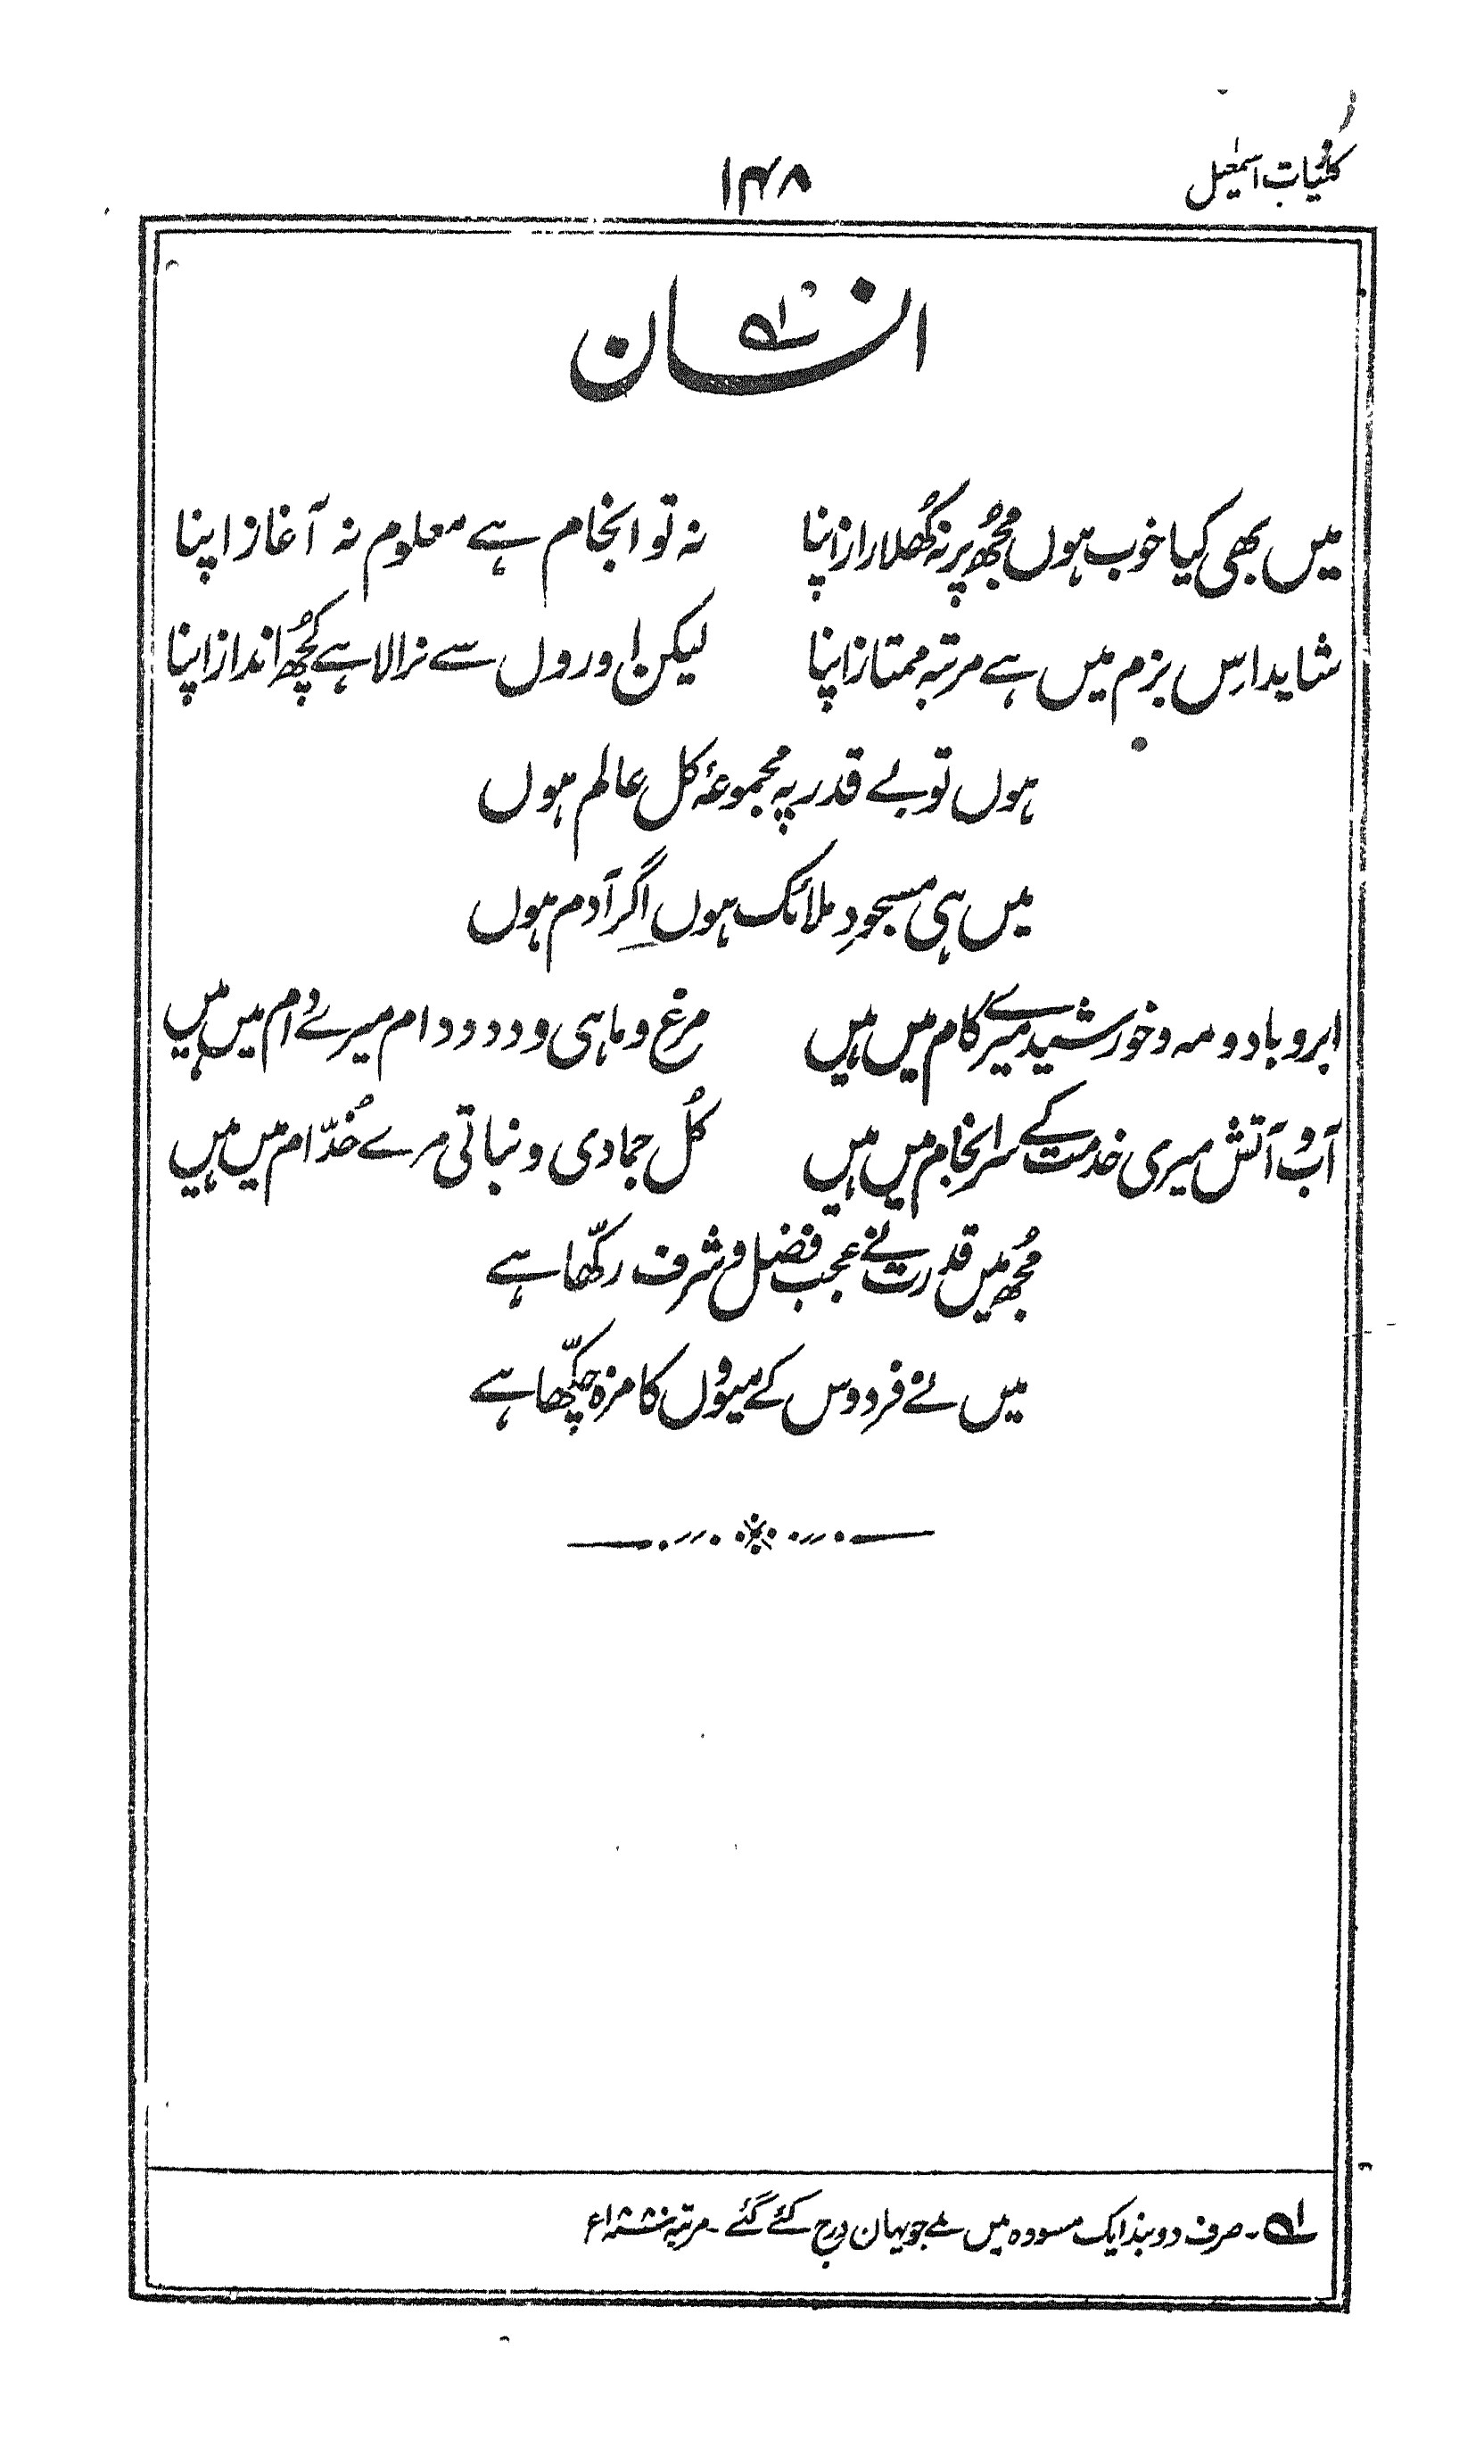 کلیات اسمٰعیل
۱۴۸
انسان
میں بھی کیا خوب ہوں مجھ پر نہ کھُلا راز اپنا نہ تو انجام ہے معلوم نہ آغاز اپنا
شاید اِس بزم میں ہے مرتبہ ممتاز اپنا لیکن اوروں سے نرالا ہے کچُھ انداز اپنا
ہوں تو بے قدر پہ مجموعۂ کل عالم ہوں
میں ہی مسجودِ ملائک ہوں اگر آدم ہوں
ابر و باد و مہ و خورشید میرے کام میں ہیں مرغ و ماہی و دد و دام میرے دام میں ہیں
آب و آتش میری خدمت کے سرانجام میں ہیں کُل جمادی و نباتی مرے خُدّام میں ہیں
مُجھ میں قدرت نے عجب فضل و شرف رکّھا ہے
میں نے فردوس کے میووں کا مزہ چکّھا ہے
لہ ۔ صرف دو بند ایک مسودہ میں ملے جو یہان درج کئے گئے ۔ مرتبہ